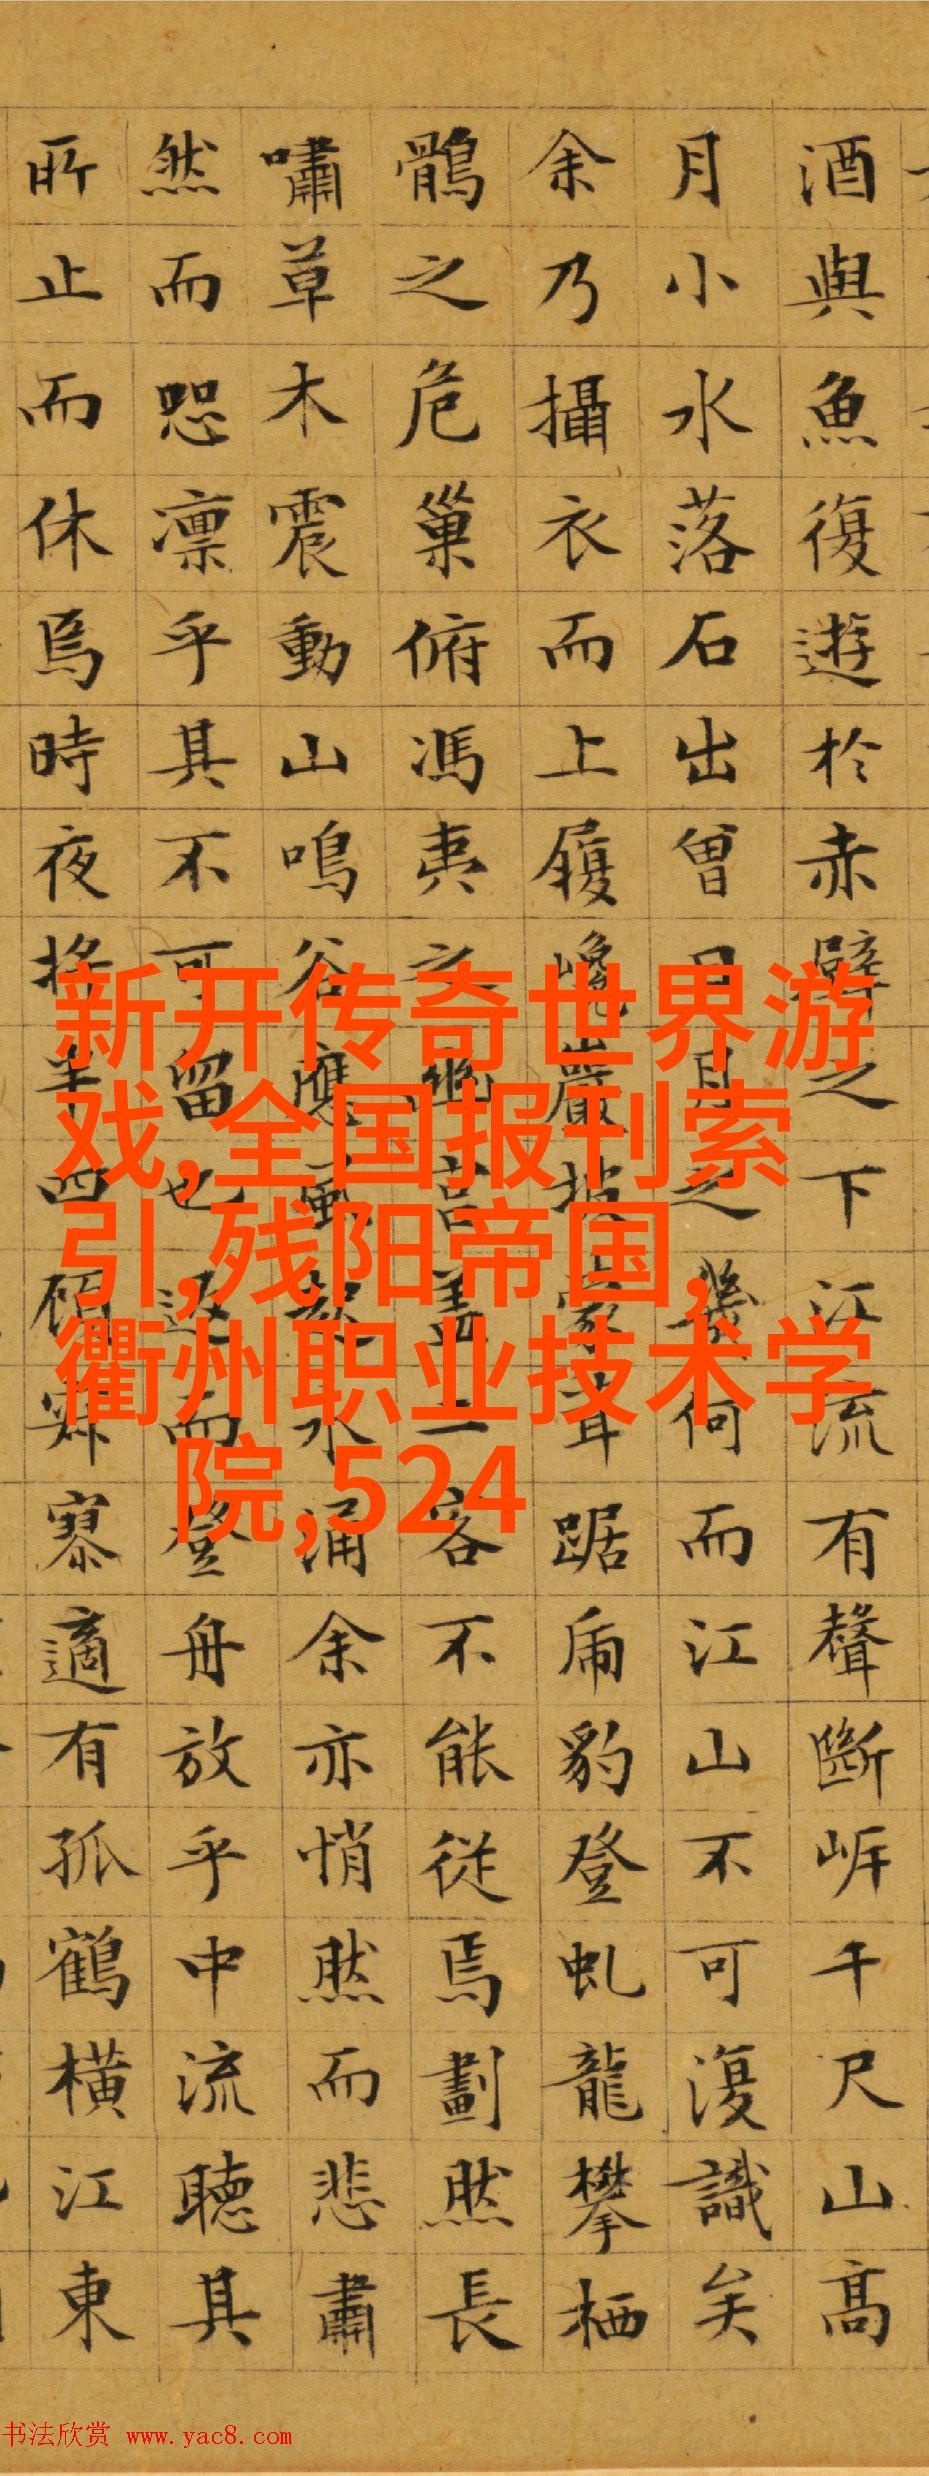 酒與魚復遊於赤壁之下江流有聲斷岸千尺山高
月小水落石出曾日月之幾何而江山不可復識矣
余乃攝衣而上履巉巖披蒙茸踞虎豹登虬龍攀栖
鶻之危巢俯馮夷之幽宮蓋二客不能從焉劃然長
嘯草木震動山鳴谷應風起水涌余亦悄然而悲肅
然而恐凛乎其不可留也返而登舟放乎中流聽其
所止而休焉時夜將半四顧寂寥適有孤鶴橫江東
新开传奇世界游
戏,全国报刊索
引,残阳帝国,
衢州职业技术学
院,524
书法欣赏 www.yac8.com